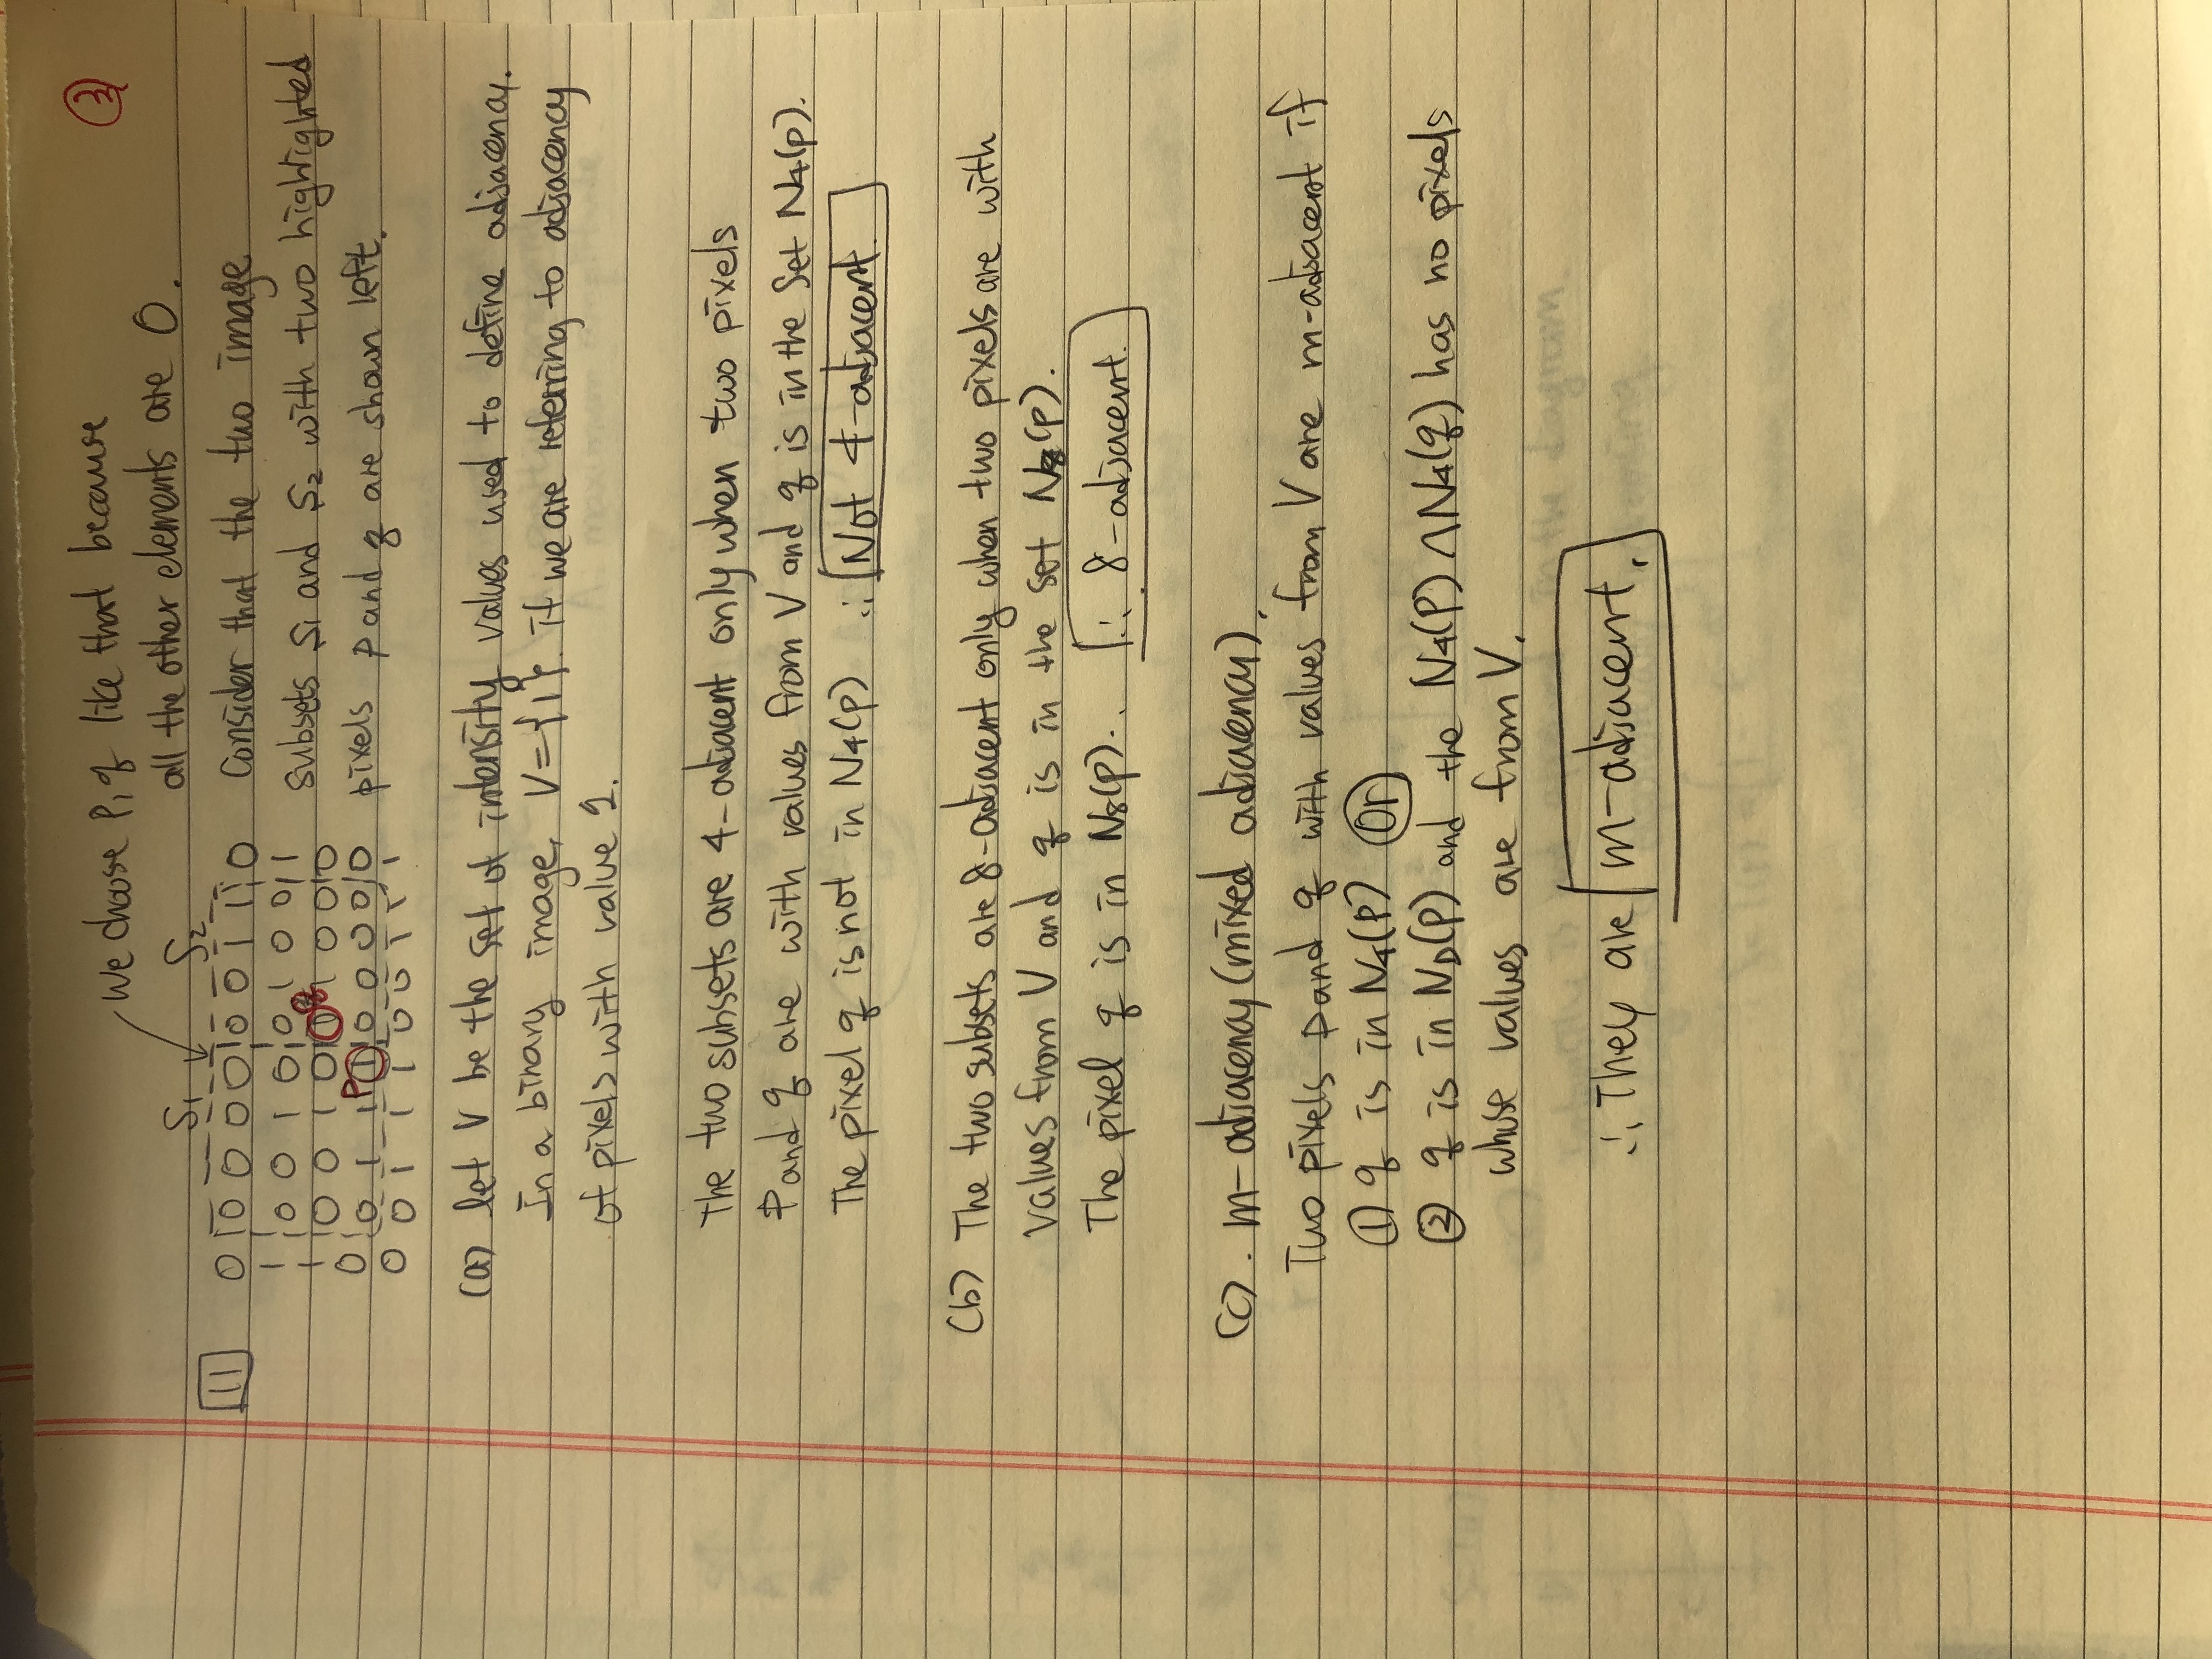 ③
We choose P, q like that because
all the other elements are 0.
S1 S2
11 0 0 0 0 0 0 0 1 1 0 Consider that the two image
1 0 0 1 0 0 1 0 0 1
subsets S1 and S2 with two highlighted
q
1 0 0 1 0 1 1 0 0 0
P
0 0 1 1 1 0 0 0 0 0 pixels p and q are shown left.
0 0 1 1 1 0 0 1 1 1
(a) let V be the set of intensity values used to define adjacency.
In a binary image, V={1} if we are referring to adjacency
of pixels with value 1.
The two subsets are 4-adjacent only when two pixels
P and q are with values from V and q is in the Set N4(p).
The pixel q is not in N4(p) ∴ Not 4-adjacent.
(b) The two subsets are 8-adjacent only when two pixels are with
values from V and q is in the set N8(p).
The pixel q is in N8(p). ∴ 8-adjacent.
(c). m-adjacency (mixed adjacency).
Two pixels p and q with values from V are m-adjacent if
① q is in N4(P) Or
② q is in ND(P) and the N4(P) ∩ N4(q) has no pixels
whose values are from V.
∴ They are m-adjacent.